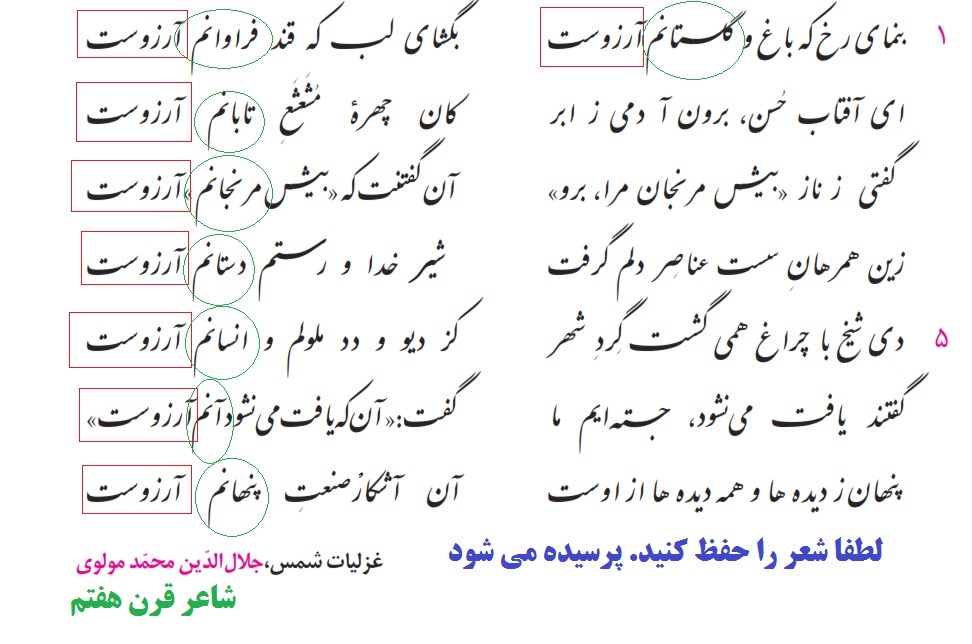 ۱ بنمای رخ که باغ و گلستانم آرزوست بگشای لب که قند فراوانم آرزوست
ای آفتاب حُسن، برون آ دمی ز ابر کان چهرهٔ مُشَعْشَعِ تابانم آرزوست
گفتی ز ناز «بیش مرنجان مرا، برو» آن گفتنت که «بیش مرنجانم» آرزوست
زین همرهانِ سست عناصِر دلم گرفت شیر خدا و رستم دستانم آرزوست
۵ دی شیخ با چراغ همی گشت گِردِ شهر کز دیو و دد ملولم و انسانم آرزوست
گفتند یافت می‌نشود، جسته‌ایم ما گفت: «آن که یافت می‌نشود آنم آرزوست»
پنهان ز دیده ها و همه دیده ها از اوست آن آشکارْ صنعتِ پنهانم آرزوست
لطفا شعر را حفظ کنید. پرسیده می شود
غزلیات شمس، جلال‌الدّین محمّد مولوی
شاعر قرن هفتم